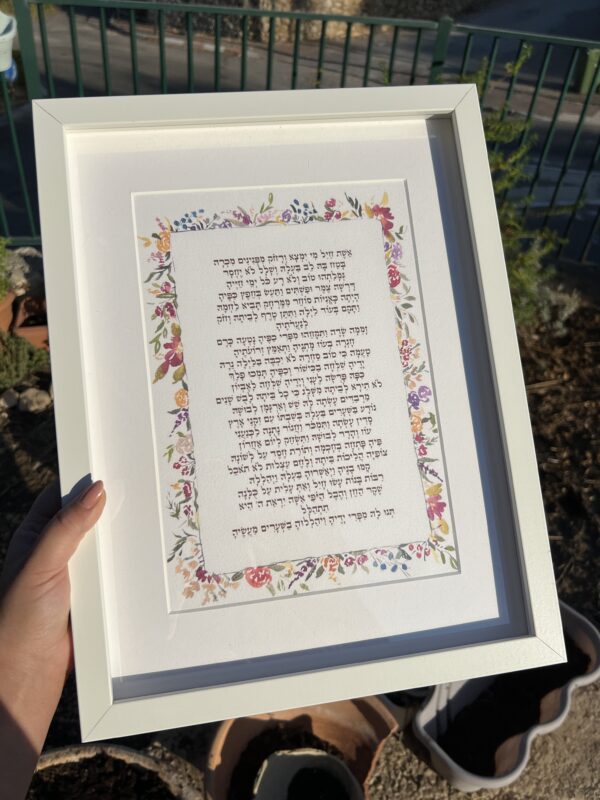 אֵשֶׁת חַיִל מִי יִמְצָא וְרָחֹק מִפְּנִינִים מִכְרָהּ
בָּטַח בָּהּ לֵב בַּעְלָהּ וְשָׁלָל לֹא יֶחְסָר
גְּמָלַתְהוּ טוֹב וְלֹא רָע כֹּל יְמֵי חַיֶּיהָ
דָּרְשָׁה צֶמֶר וּפִשְׁתִּים וַתַּעַשׂ בְּחֵפֶץ כַּפֶּיהָ
הָיְתָה כָּאֳנִיּוֹת סוֹחֵר מִמֶּרְחָק תָּבִיא לַחְמָהּ
וַתָּקָם בְּעוֹד לַיְלָה וַתִּתֵּן טֶרֶף לְבֵיתָהּ וְחֹק
לְנַעֲרֹתֶיהָ
זָמְמָה שָׂדֶה וַתִּקָּחֵהוּ מִפְּרִי כַפֶּיהָ נָטְעָה כָּרֶם
חָגְרָה בְעוֹז מָתְנֶיהָ וַתְּאַמֵּץ זְרוֹעֹתֶיהָ
טָעֲמָה כִּי טוֹב סַחְרָהּ לֹא יִכְבֶּה בַלַּיְלָה נֵרָהּ
יָדֶיהָ שִׁלְּחָה בַכִּישׁוֹר וְכַפֶּיהָ תָּמְכוּ פָלֶךְ
כַּפָּהּ פָּרְשָׂה לֶעָנִי וְיָדֶיהָ שִׁלְּחָה לָאֶבְיוֹן
לֹא תִירָא לְבֵיתָהּ מִשָּׁלֶג כִּי כָל בֵּיתָהּ לָבֻשׁ שָׁנִים
מַרְבַדִּים עָשְׂתָה לָּהּ שֵׁשׁ וְאַרְגָּמָן לְבוּשָׁהּ
נוֹדָע בַּשְּׁעָרִים בַּעְלָהּ בְּשִׁבְתּוֹ עִם זִקְנֵי אָרֶץ
סָדִין עָשְׂתָה וַתִּמְכֹּר וַחֲגוֹר נָתְנָה לַכְּנַעֲנִי
עוֹז וְהָדָר לְבוּשָׁהּ וַתִּשְׂחַק לְיוֹם אַחֲרוֹן
פִּיהָ פָּתְחָה בְחָכְמָה וְתוֹרַת חֶסֶד עַל לְשׁוֹנָהּ
צוֹפִיָּה הֲלִיכוֹת בֵּיתָהּ וְלֶחֶם עַצְלוּת לֹא תֹאכֵל
קָמוּ בָנֶיהָ וַיְאַשְּׁרוּהָ בַּעְלָהּ וַיְהַלְלָהּ
רַבּוֹת בָּנוֹת עָשׂוּ חָיִל וְאַתְּ עָלִית עַל כֻּלָּנָה
שֶׁקֶר הַחֵן וְהֶבֶל הַיֹּפִי אִשָּׁה יִרְאַת ה' הִיא
תִתְהַלָּל
תְּנוּ לָהּ מִפְּרִי יָדֶיהָ וִיהַלְלוּהָ בַשְּׁעָרִים מַעֲשֶׂיהָ